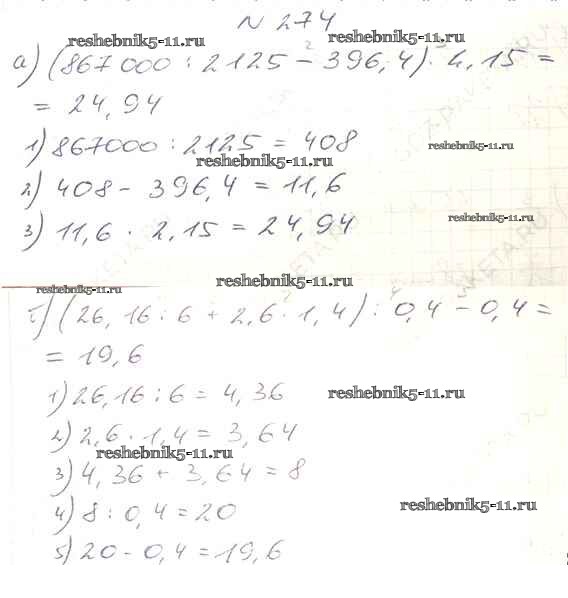 № 274
reshebnik5-11.ru
а) (867000 : 2125 - 396,4) · 2,15 =
= 24,94
1) 867000 : 2125 = 408
reshebnik5-11.ru
reshebnik5-11.ru
2) 408 - 396,4 = 11,6
3) 11,6 · 2,15 = 24,94
reshebnik5-11.ru
reshebnik5-11.ru
reshebnik5-11.ru
б) (26,16 : 6 + 2,6 · 1,4) : 0,4 - 0,4 =
= 19,6
1) 26,16 : 6 = 4,36
reshebnik5-11.ru
2) 2,6 · 1,4 = 3,64
reshebnik5-11.ru
3) 4,36 + 3,64 = 8
4) 8 : 0,4 = 20
reshebnik5-11.ru
5) 20 - 0,4 = 19,6